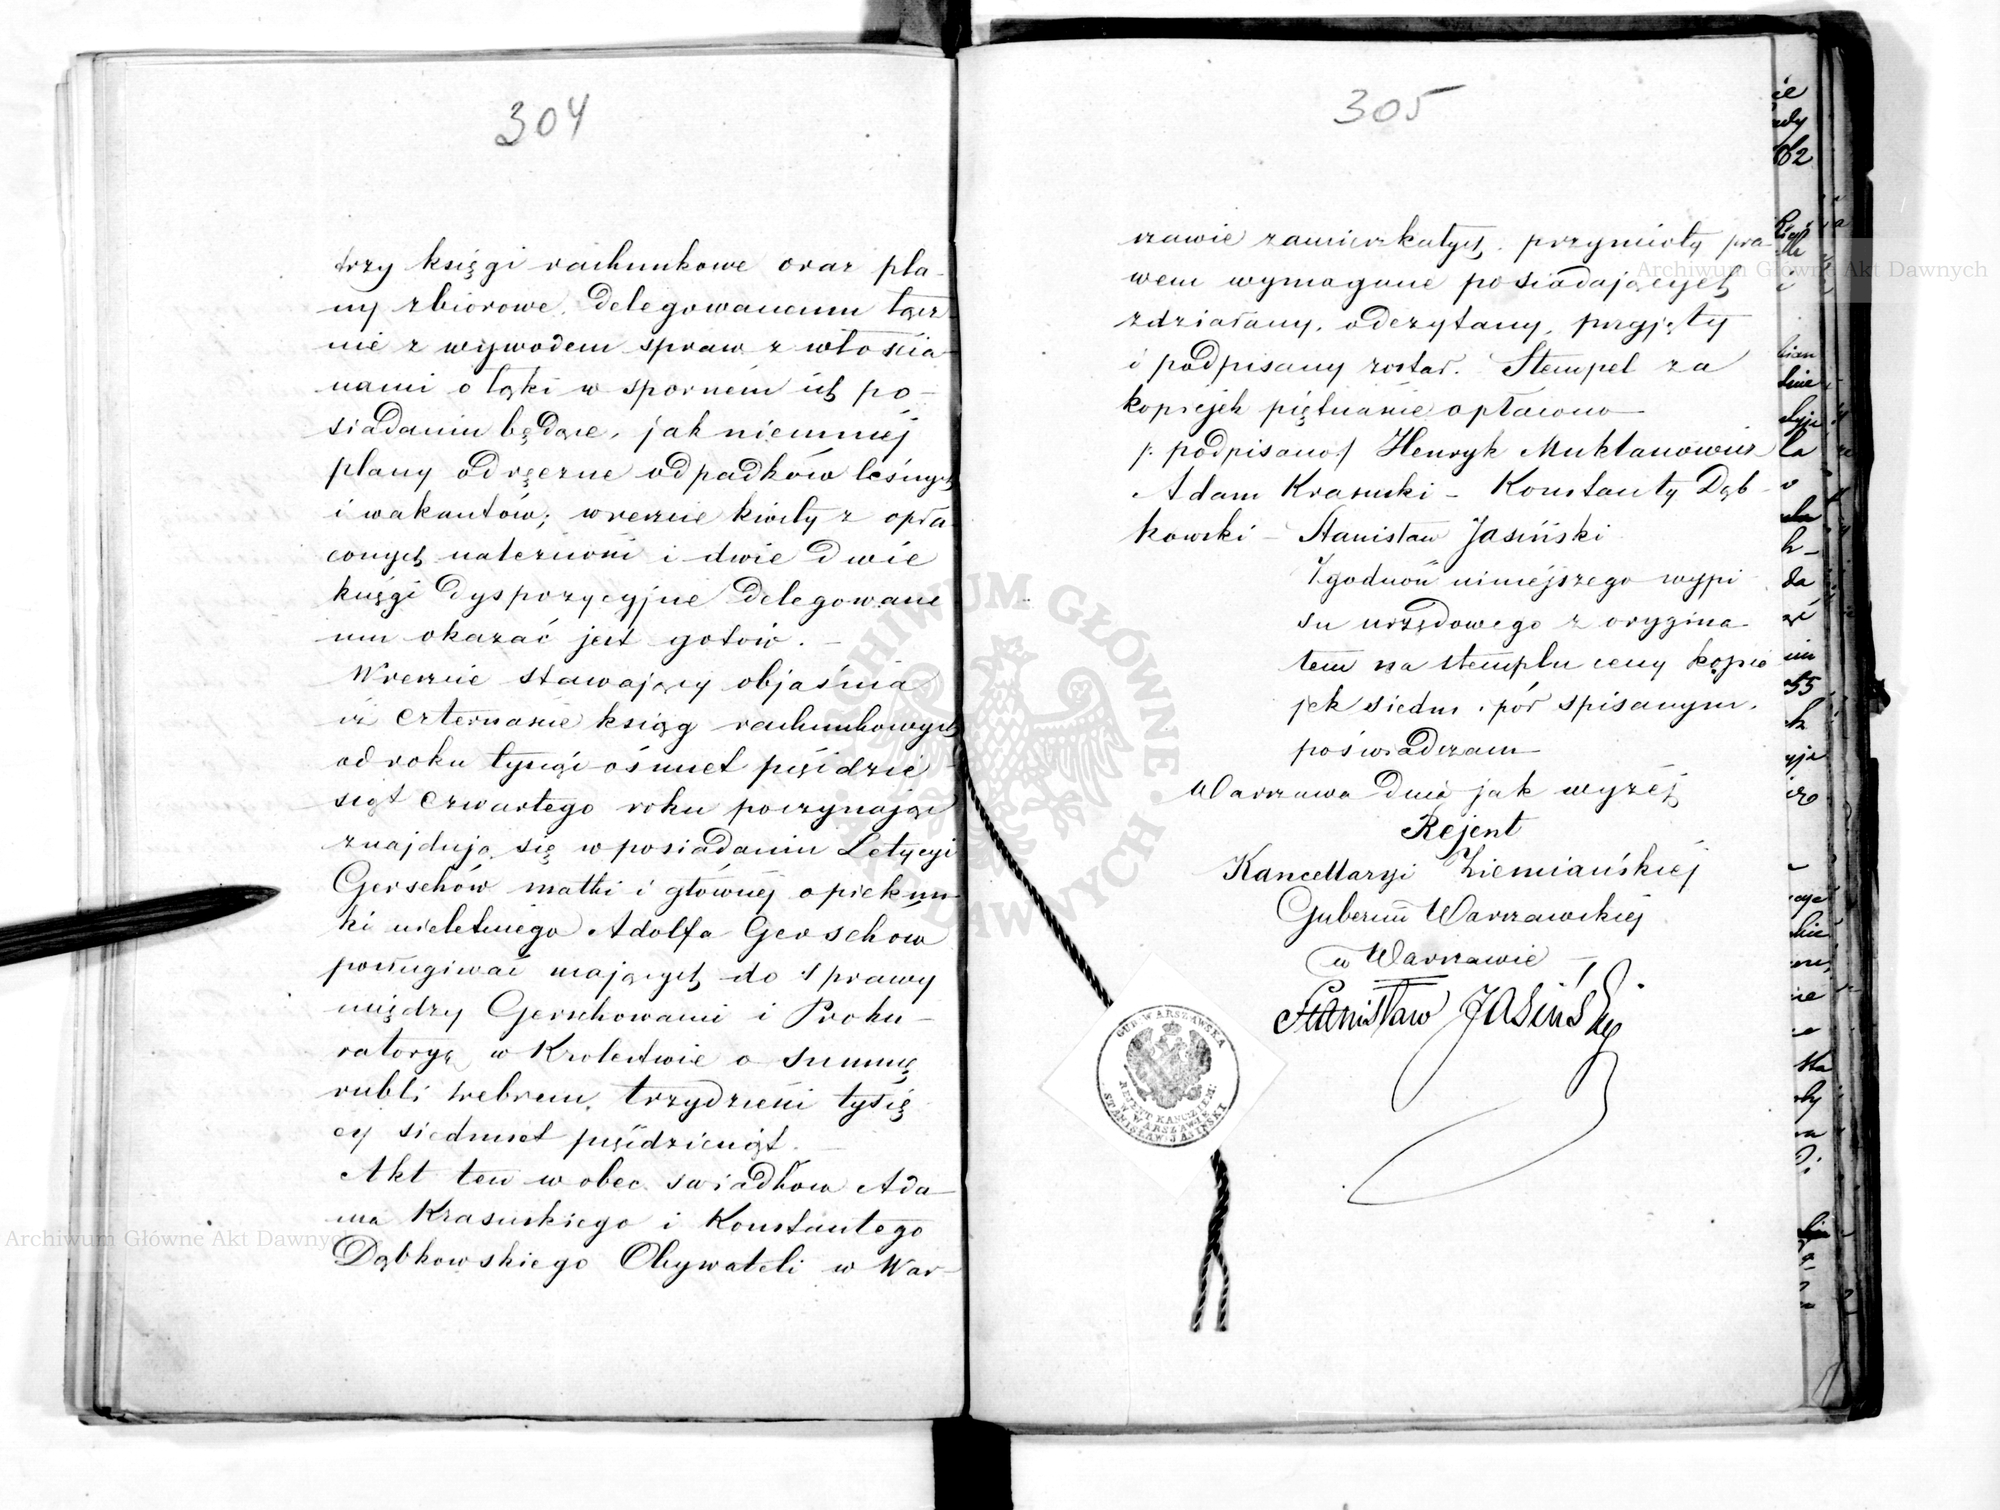 304
trzy księgi rachunkowe oraz pla-
ny zbiorowe. Delegowanemu łącz-
nie z wywodem spraw z włościa-
nami o łąki w spornem ich po-
siadaniu będące, jak niemniej
plany odręczne odpadków leśnych
i wakantów; wreszcie kwity z opła-
conych należności i dwie dwie
księgi dyspozycyjne Delegowane
mu okazać jest gotów. —
Wreszcie stawający objaśnia
iż czternaście ksiąg rachunkowych
od roku tysiąc ośmset pięćdzie
siąt czwartego roku poczynając
znajdują się w posiadaniu Letycyi
Gerschów matki i głównej opiekun-
ki nieletniego Adolfa Gerschów
posługiwać mających do sprawy
między Gerschowami i Proku-
ratoryą w Królestwie o summę
rubli srebrem trzydzieści tysię
cy siedmset pięćdziesiąt. —
Akt ten w obec świadków Ada-
ma Krasuskiego i Konstantego
Dąbkowskiego Obywateli w War-
305
szawie zamieszkałych, przymioty pra-
wem wymagane posiadających
zdziałany, odczytany, przyjęty
i podpisany został. Stempel za
kopiejek piętnaście opłacono —
/: podpisano/ Henryk Muklanowicz
Adam Krasuski — Konstanty Dąb-
kowski — Stanisław Jasiński
Zgodność niniejszego wypi
su urzędowego z orygina-
łem na stemplu ceny kopie
jek siedm i pół spisanym,
poświadczam —
Warszawa dnia jak wyżej
Rejent
Kancellaryi Ziemiańskiej
Gubernii Warszawskiej
w Warszawie —
Stanisław Jasiński
GUB. WARSZAWSKA
REJENT KANC. ZIEM.
W WARSZAWIE
STANISŁAW JASIŃSKI
ARCHIWUM GŁÓWNE AKT DAWNYCH
Archiwum Główne Akt Dawnych
Archiwum Główne Akt Dawnych